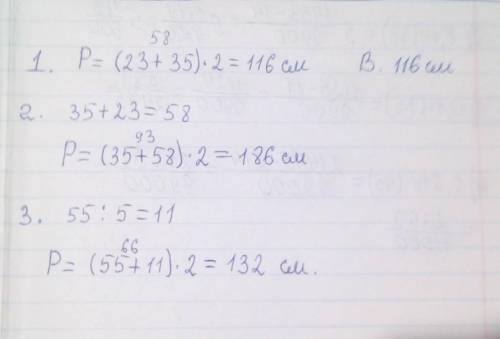 58
1. P = (23 + 35) · 2 = 116 см В. 116 см
2. 35 + 23 = 58
93
P = (35 + 58) · 2 = 186 см
3. 55 : 5 = 11
66
P = (55 + 11) · 2 = 132 см.